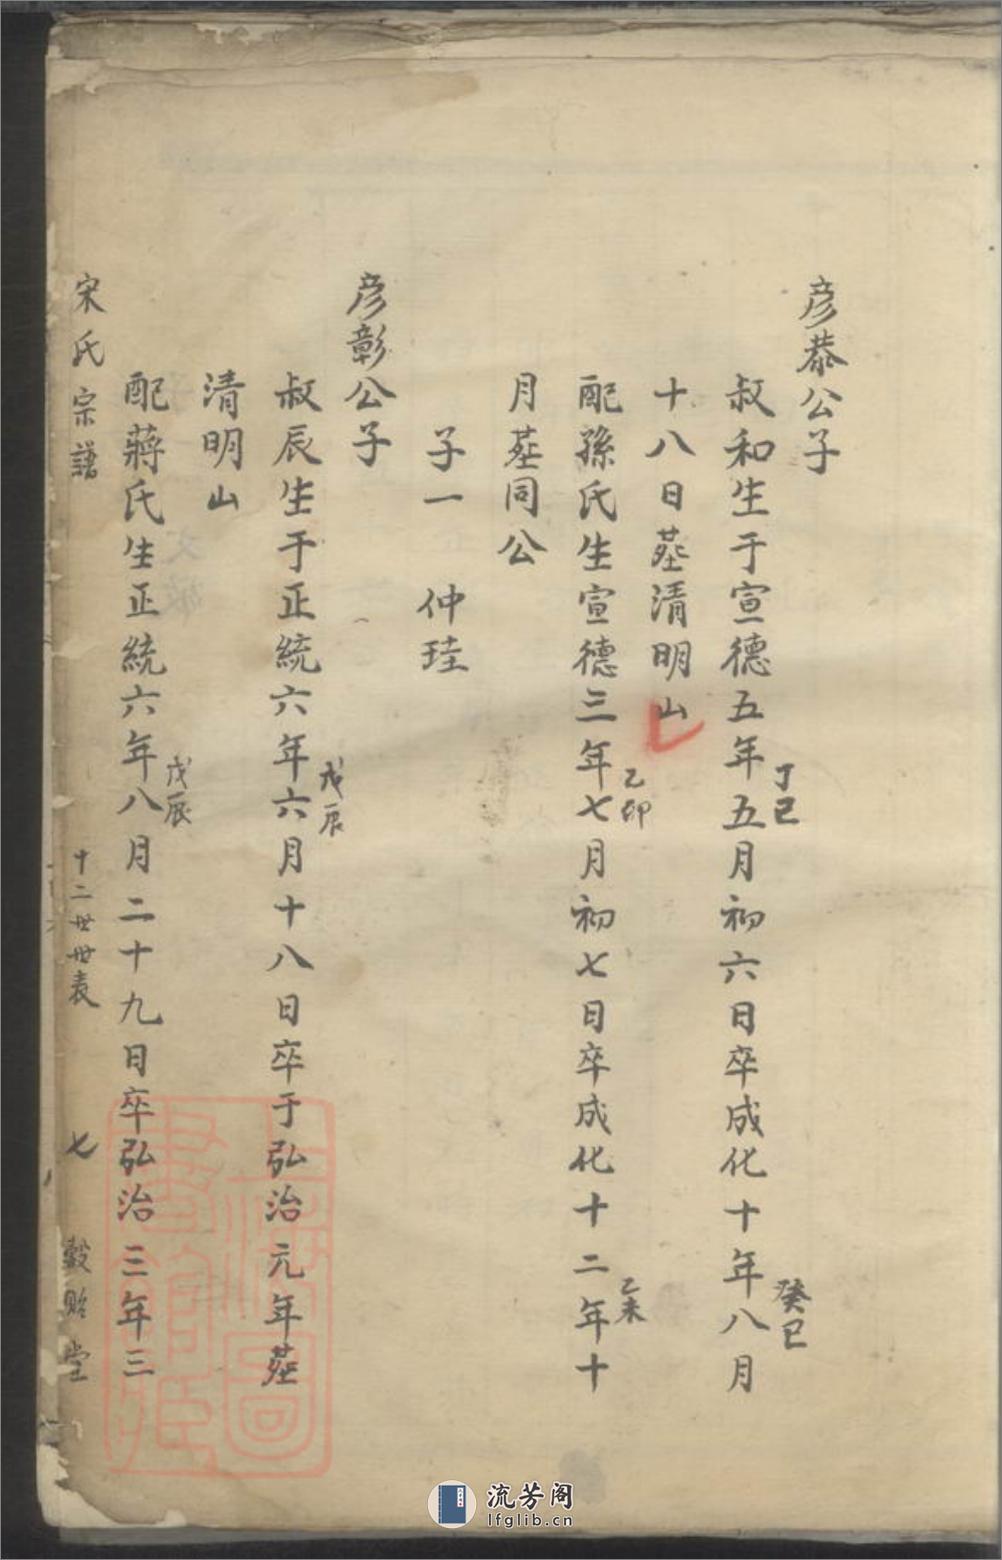 彦恭公子
叔和生于宣德五年五月初六日卒成化十年八月
丁巳
癸巳
十八日塟清明山
配孫氏生宣德三年七月初七日卒成化十二年十
乙卯
乙未
月塟同公
子一 仲珪
彦彰公子
叔辰生于正統六年六月十八日卒于弘治元年塟
戊辰
清明山
配蔣氏生正統六年八月二十九日卒弘治三年三
戊辰
宋氏宗譜 十二世世表 七 穀貽堂
上海圖
書館藏
流芳阁
lfglib.cn